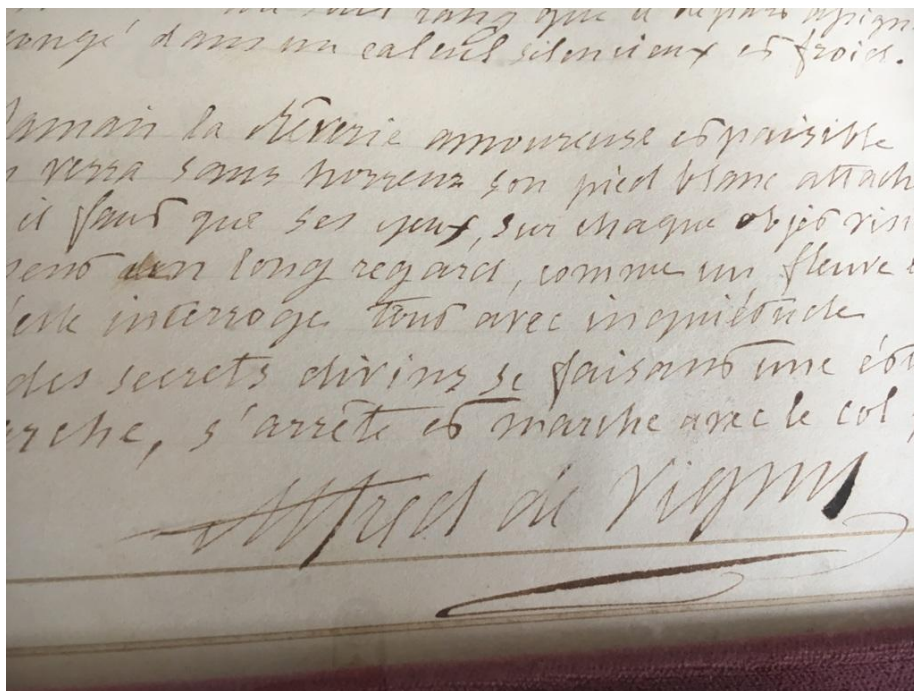 rang que
congé dans un calcul silencieux et froid.
Jamais la Rêverie amoureuse et paisible
verra sans horreur son pied blanc attach
il faut que ses yeux, sur chaque objet vis
un long regard, comme un fleuve
elle interroge tout avec inquiétude
des secrets divins se faisant une ét
erche, s'arrête et marche avec le col
Alfred de Vigny